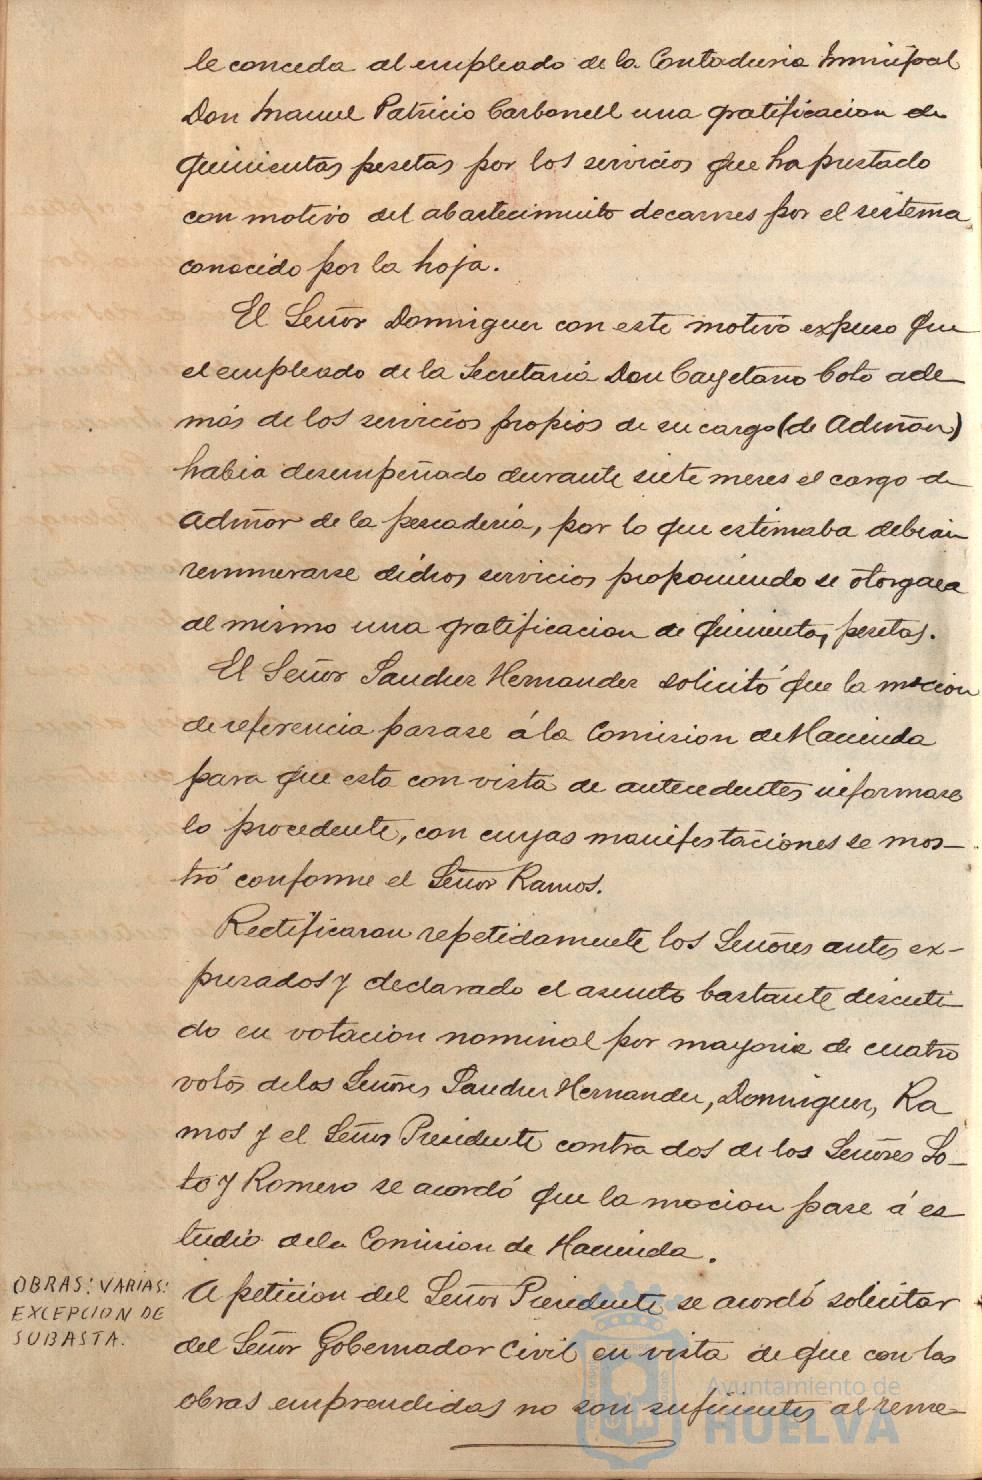 le conceda al empleado de la Contaduria Municipal
Don Manuel Patricio Carbonell una gratificacion de
quinientas pesetas por los servicios que ha prestado
con motivo del abastecimiento de carnes por el sistema
conocido por la hoja.
El Señor Dominguez con este motivo expuso que
el empleado de la Secretaria Don Cayetano Coto ade-
más de los servicios propios de su cargo (de Admon)
habia desempeñado durante siete meses el cargo de
Admor de la pescaderia, por lo que estimaba debian
remunerarse dichos servicios proponiendo se otorgara
al mismo una gratificacion de quinientas pesetas.
El Señor Sanchez Hernandez solicitó que la mocion
de referencia pasase á la Comision de Hacienda
para que esta con vista de antecedentes informase
lo procedente, con cuyas manifestaciones se mos-
tró conforme el Señor Ramos.
Rectificaron repetidamente los Señores antes ex-
presados y declarado el asunto bastante discuti-
do en votacion nominal por mayoria de cuatro
votos de los Señores Sanchez Hernandez, Dominguez, Ra
mos y el Señor Presidente contra dos de los Señores So-
to y Romero se acordó que la mocion pase á es-
tudio de la Comision de Hacienda.
OBRAS: VARIAS:
EXCEPCION DE
SUBASTA.
A peticion del Señor Presidente se acordó solicitar
del Señor Gobernador Civil en vista de que con las
obras emprendidas no son suficientes al reme-
Ayuntamiento de
HUELVA